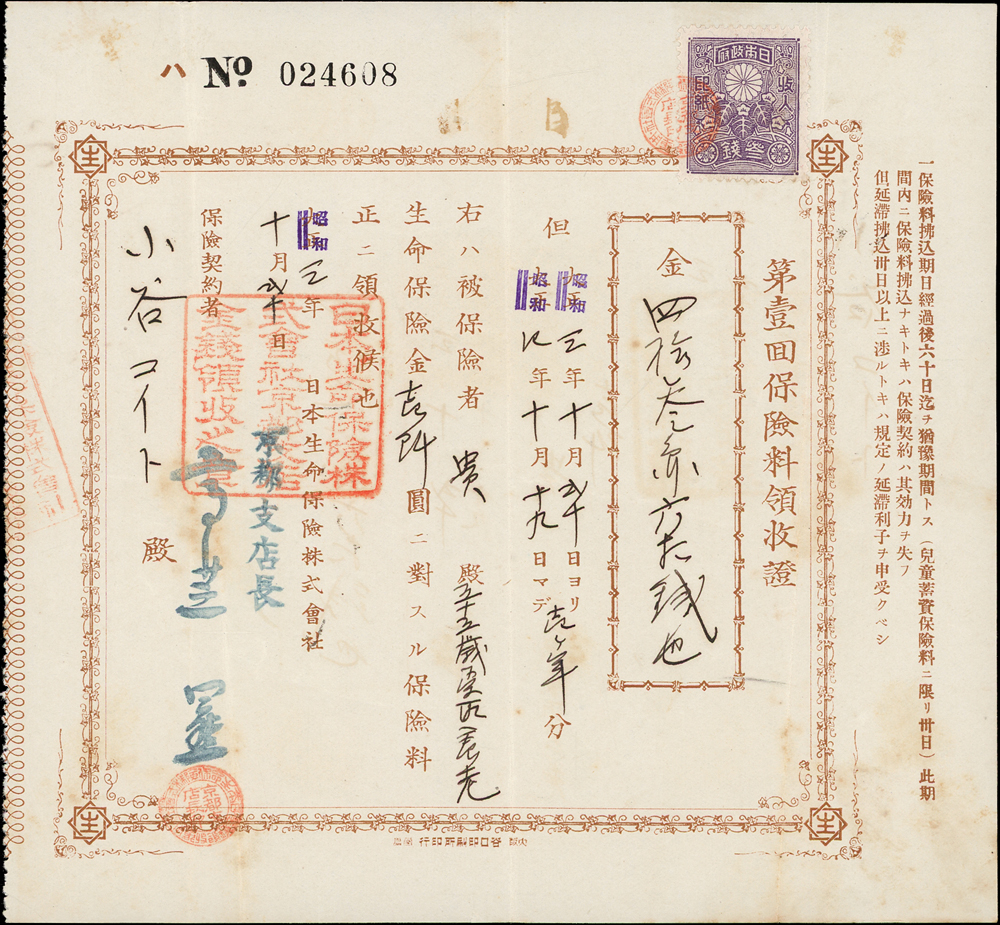 ハ № 024608
日本政府
収入印紙
参銭
一保險料拂込期日經過後六十日迄ヲ猶豫期間トス（兒童蓄資保險料ニ限リ卅日）此期
間内ニ保險料拂込ナキトキハ保險契約ハ其効力ヲ失フ
但延滯拂込卅日以上ニ渉ルトキハ規定ノ延滯利子ヲ申受クベシ
第壹回保險料領收證
金四拾
銭也
但昭和三年十月
日ヨリ
昭和
年十月十九日マデ
壱年分
右ハ被保險者
貴殿
五十五歳
生命保險金壱阡圓ニ對スル保險料
正ニ領收候也
昭和三年
十月
日
日本生命保險株式會社
京都支店長
日本生命保險株
式會社京都支店
金錢領收之章
保險契約者
小谷コイト殿
生
生
生
生